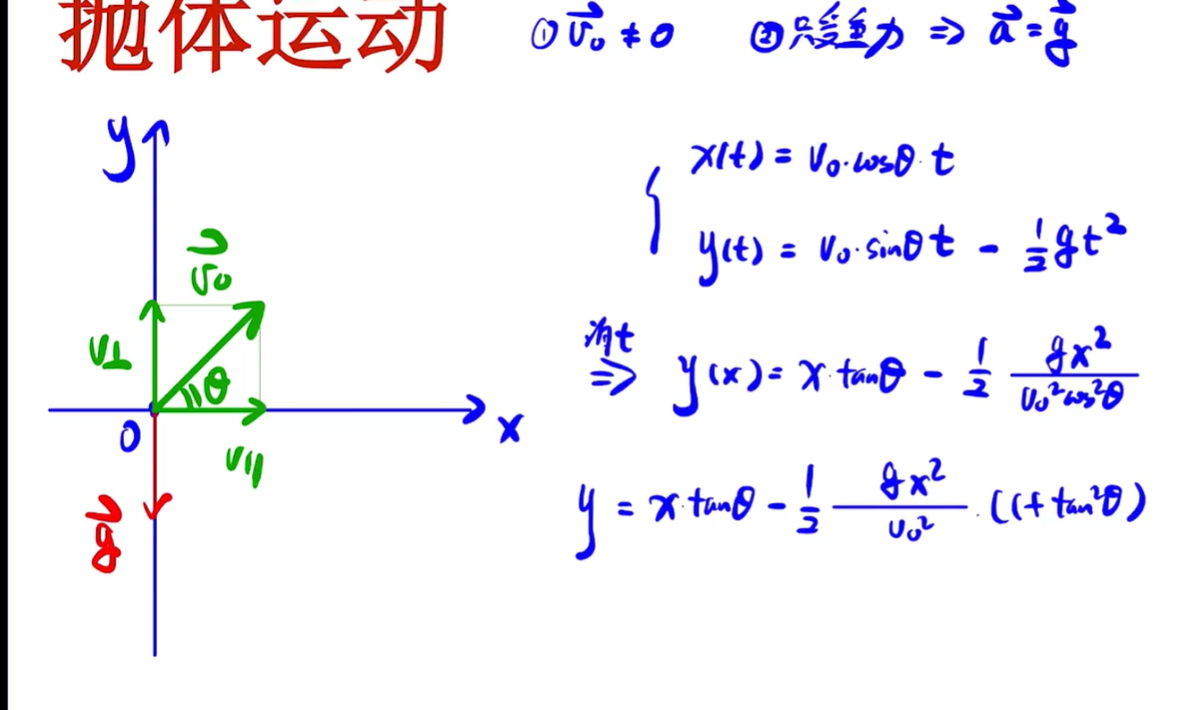 抛体运动 ① v⃗₀ ≠ 0 ② 只受重力 ⇒ a⃗ = g⃗
y
x(t) = v₀·cosθ·t
y(t) = v₀·sinθ t - ½gt²
v⃗₀
v⊥
θ
消t ⇒ y(x) = x·tanθ - ½ gx²/(v₀²cos²θ)
0
x
v∥
g⃗
y = x·tanθ - ½ gx²/v₀² ·(1+tan²θ)